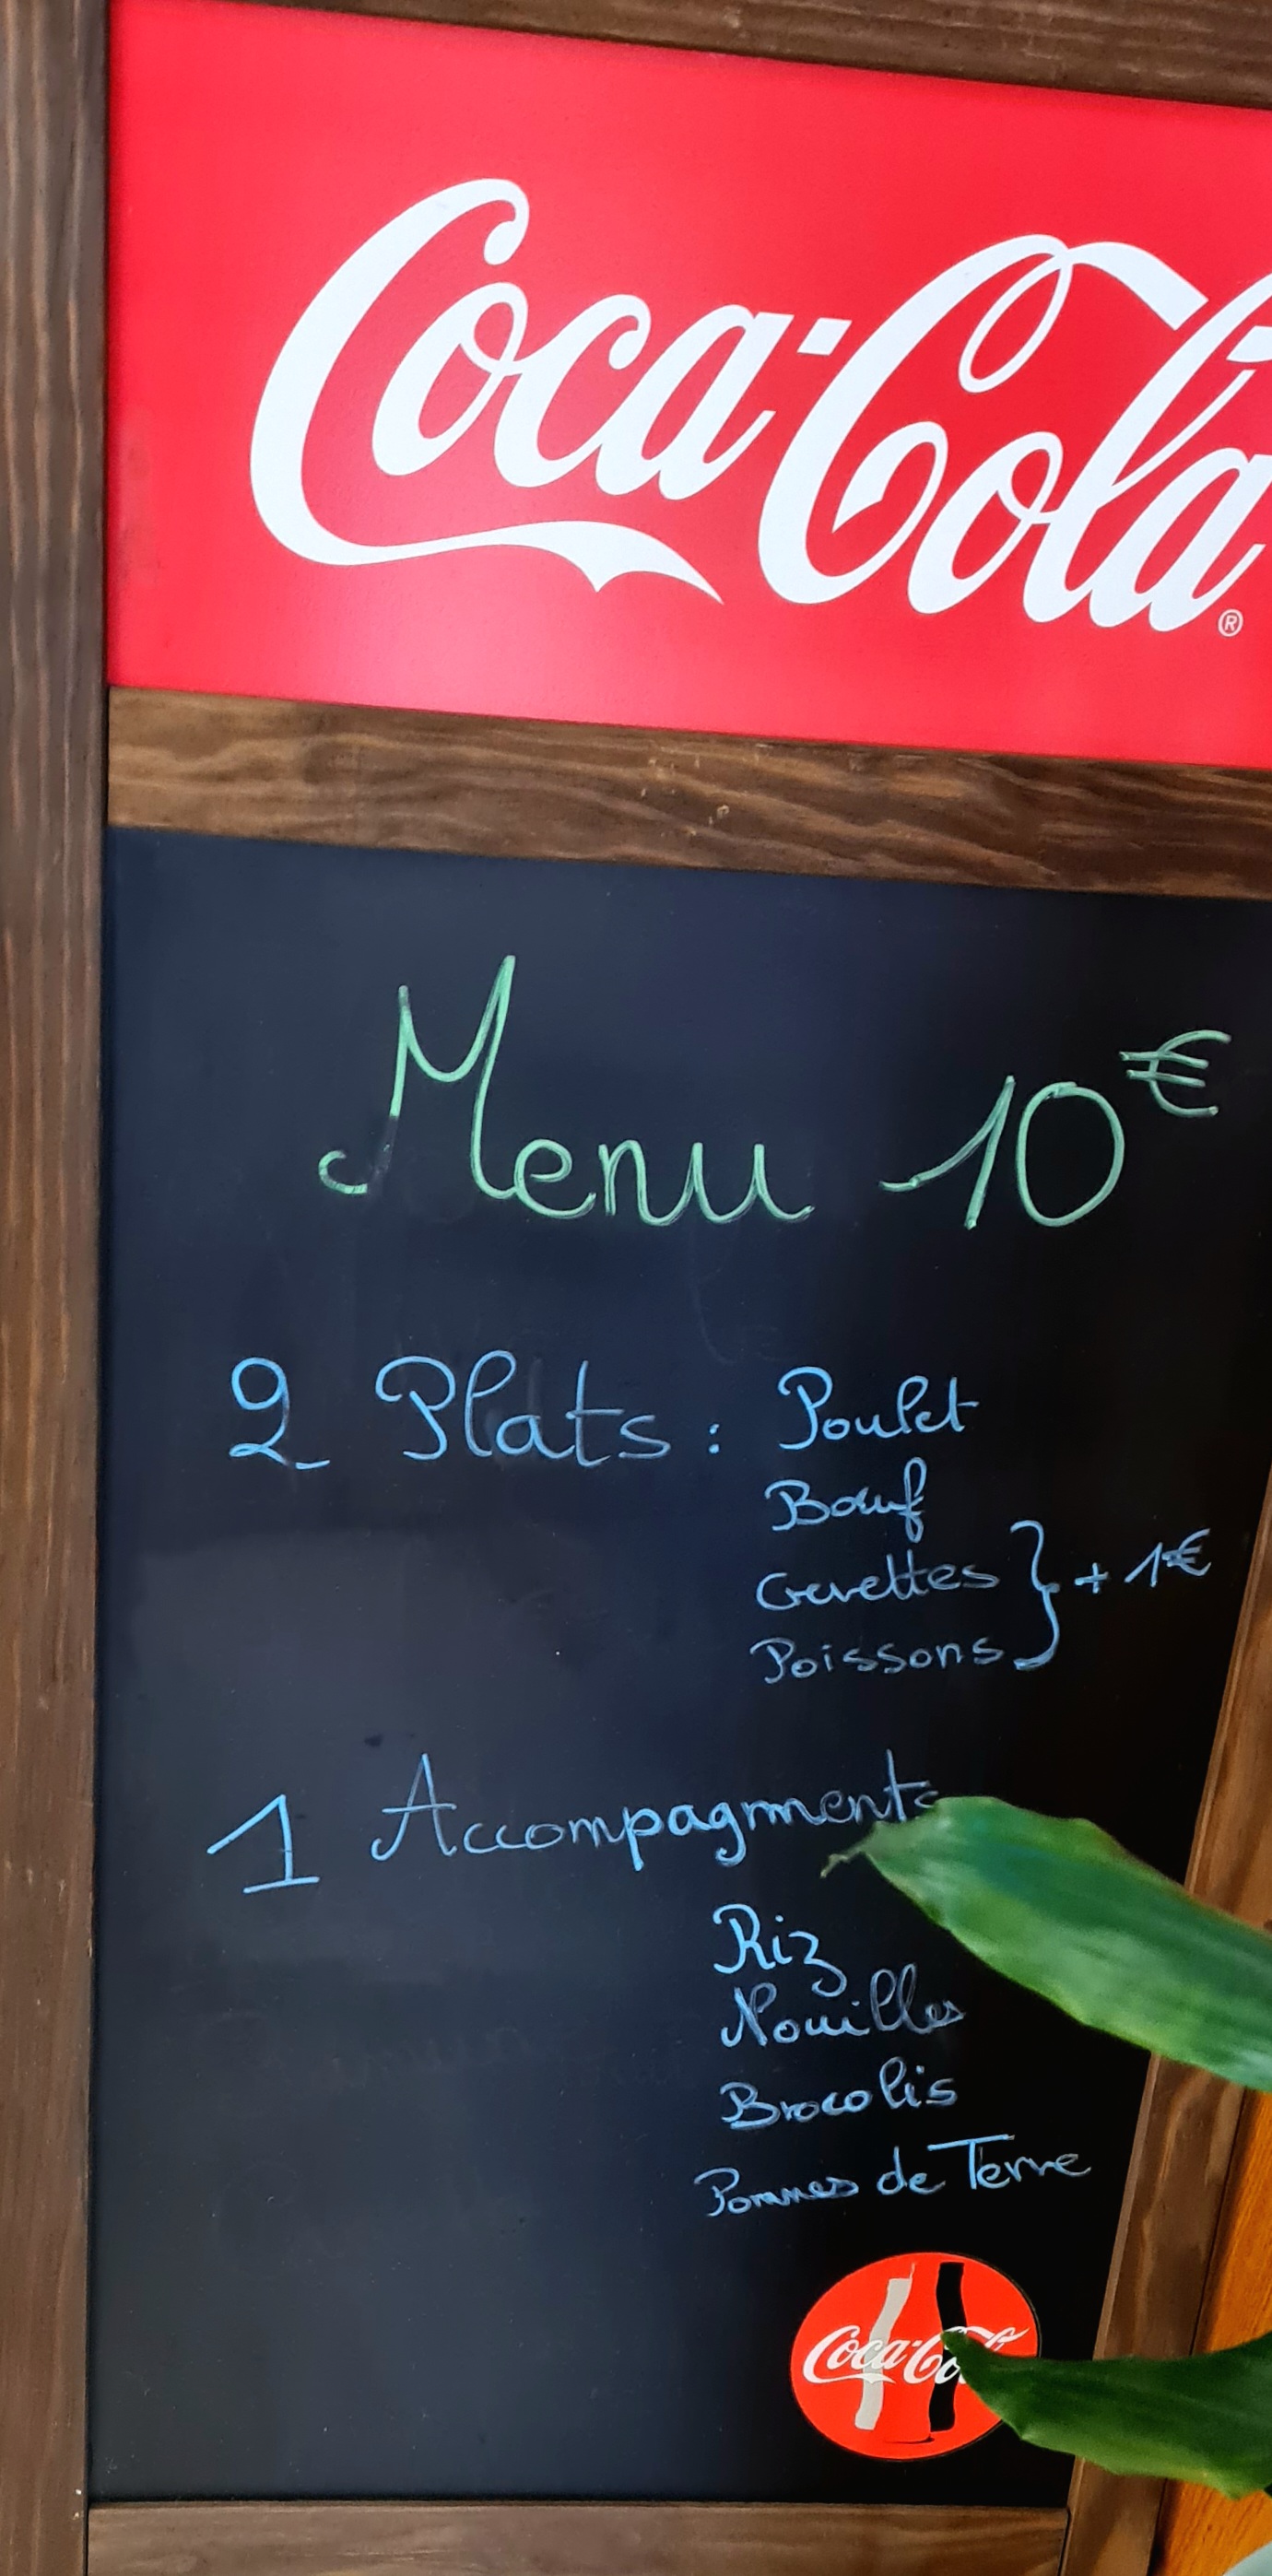 Coca-Cola®
Menu 10€
2 Plats : Poulet
Bœuf
Crevettes } + 1€
Poissons
1 Accompagnments
Riz
Nouilles
Brocolis
Pommes de Terre
Coca-Cola